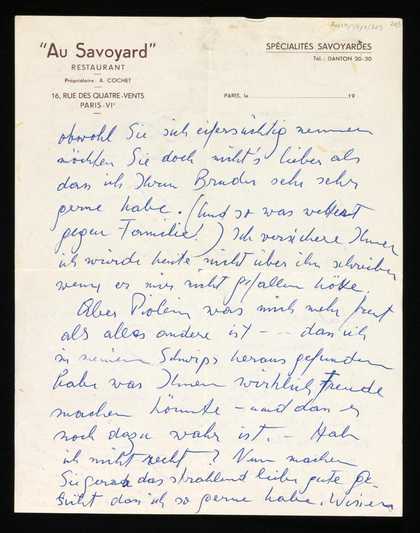 "Au Savoyard"
RESTAURANT
Propriétaire: A. COCHET
16, RUE DES QUATRE-VENTS
PARIS-VIe
SPÉCIALITÉS SAVOYARDES
Tél.: DANTON 20-30
PARIS, le 19
obwohl Sie sich eifersüchtig nennen
möchten Sie doch nicht's lieber als
dass ich Ihren Bruder sehr sehr
gerne habe. (Und so was wettert
gegen Familie!) Ich versichere Ihnen
ich würde heute nicht über ihn schreiben
wenn er mir nicht gefallen hätte.
Aber was mich mehr freut
als alles andere ist -- dass ich
in meinem Schwips herausgefunden
habe was Ihnen wirklich Freude
machen könnte - und dass es
noch dazu wahr ist. - Hab
ich nicht recht? Nun machen
Sie gerade das strahlend liebe gute Ge-
sicht das ich so gerne habe. Wissen